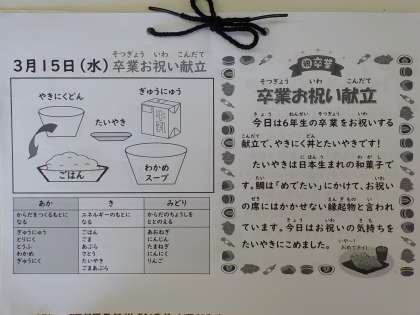 3月15日(水)卒業お祝い献立
そつぎょう いわ こんだて
やきにくどん
ぎゅうにゅう
たいやき
ごはん
わかめ
スープ
あか き みどり
からだをつくるもとに
なる
エネルギーのもとに
なる
からだのちょうしを
ととのえる
ぎゅうにゅう ごはん あおねぎ
とりにく ごま にんじん
とうふ あぶら たまねぎ
わかめ さとう にんにく
ぎゅうにく たいやき りんご
ごまあぶら
祝卒業
そつぎょう いわ こんだて
卒業お祝い献立
今日は6年生の卒業をお祝いする
献立で、やきにく丼とたいやきです!
たいやきは日本生まれの和菓子で
す。鯛は「めでたい」にかけて、お祝い
の席にはかかせない縁起物と言われ
ています。今日はお祝いの気持ちを
たいやきにこめました。